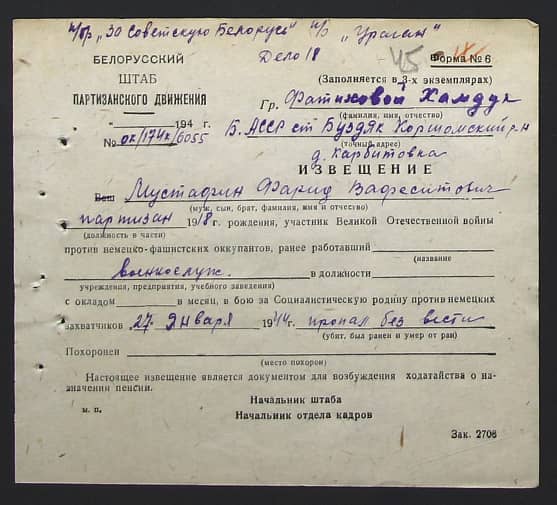 п/бр "За Советскую Белорусь" п/о "Ураган"
Дело 18
45
БЕЛОРУССКИЙ
ШТАБ
ПАРТИЗАНСКОГО ДВИЖЕНИЯ
"___" ________ 194 г.
№ ок/174к/6055
Форма № 6
(Заполняется в 3-х экземплярах)
Гр. Фатиховой Хамдук
(фамилия, имя, отчество)
Б. АССР ст Буздяк р-н
(точный адрес)
д. Карбитовка
ИЗВЕЩЕНИЕ
Ваш Мустафин Фарид
(муж, сын, брат, фамилия, имя и отчество)
партизан 1918 г. рождения, участник Великой Отечественной войны
(должность в части)
против немецко-фашистских оккупантов, ранее работавший
(название
военнослуж. в должности
учреждения, предприятия, учебного заведения)
с окладом в месяц, в бою за Социалистическую родину против немецких
захватчиков 27 января 1944 г. пропал без вести
(убит, был ранен и умер от ран)
Похоронен
(место похорон)
Настоящее извещение является документом для возбуждения ходатайства о на-
значении пенсии.
Начальник штаба
м. п. Начальник отдела кадров
Зак. 2706